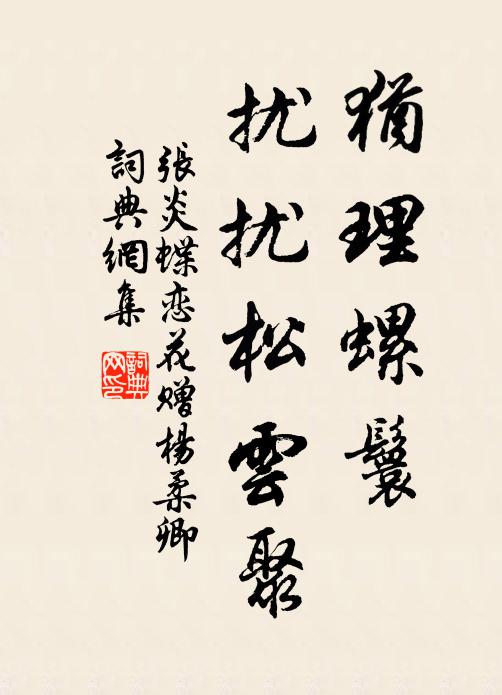 猶理螺鬟
扰扰松雲聚
張炎蝶恋花赠楊柔卿
詞典網集
詞典网印